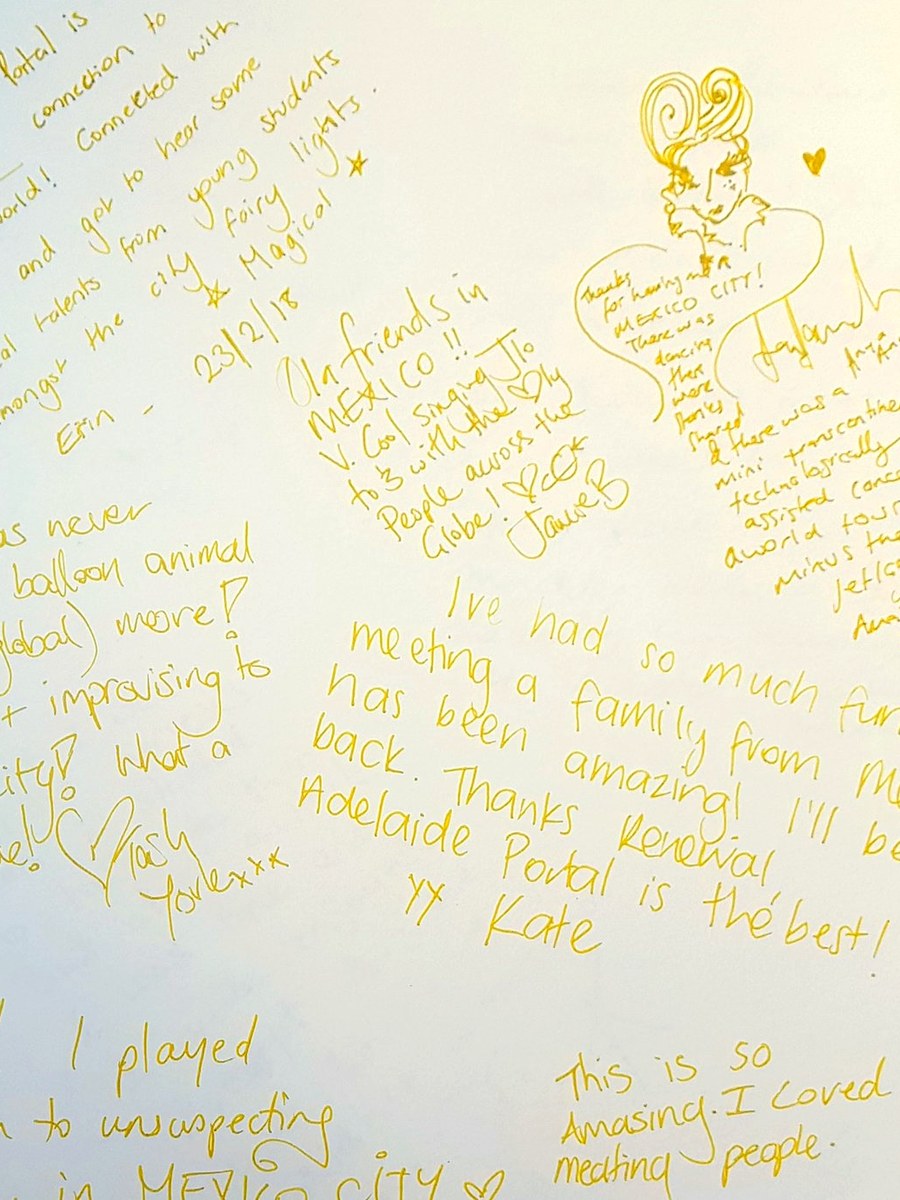 Portal is
connection to
world! Connected with
and got to hear some
talents from young students
amongst the city fairy lights.
☆ Magical ☆
Erin - 23/2/18
Ola friends in
MEXICO !!
V. Cool singing Jlo
to 3 with the ♡ly
People across the
Globe! ♡
Jamie B
Thanks
for having me
MEXICO CITY!
There was
dancing
there
were
stories
shared
& there was a
mini
technologically
assisted
a world tour
minus the
as never
balloon animal
(global) more!
improvising to
city! What a
♡ Tash
Yorkexxx
I've had so much fun
meeting a family from
has been amazing! I'll be
back. Thanks Renewal
Adelaide Portal is the best!
Kate
I played
to unsuspecting
in MEXICO CITY ♡
This is so
Amazing. I Loved
meating people.